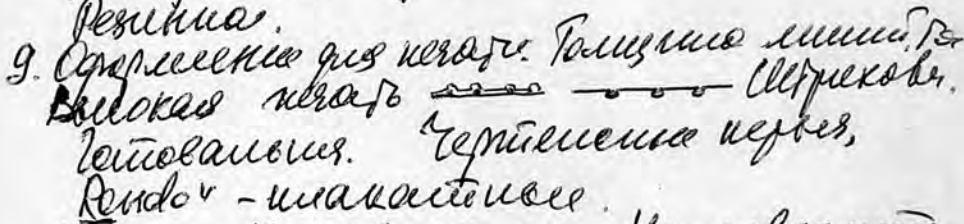 Резинка.
9. Оформление для печати. Толщина линий.
Высокая печать Штриховая.
Готовальня. Чертежные перья,
Rendo" - плакатное.